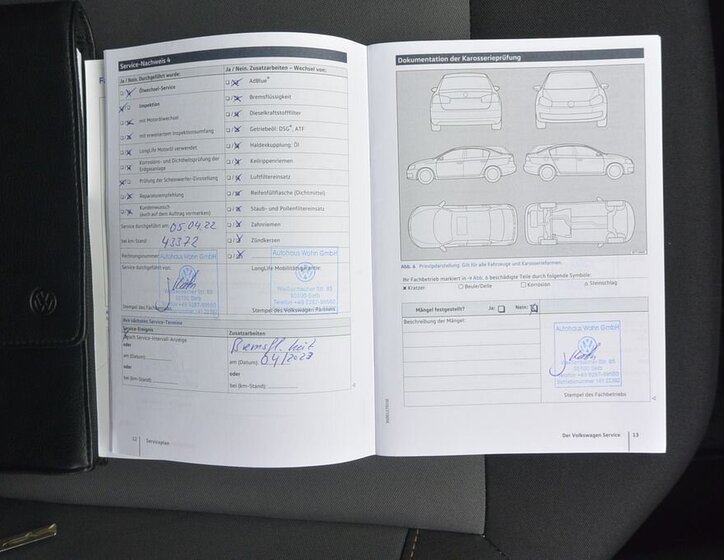 Service-Nachweis 4
Ja / Nein. Durchgeführt wurde:
Ölwechsel-Service
Inspektion
mit Motorölwechsel
mit erweitertem Inspektionsumfang
LongLife Motoröl verwendet
Korrosions- und Dichtheitsprüfung der
Erdgasanlage
Prüfung der Scheinwerfer-Einstellung
Reparaturempfehlung
Kundenwunsch
(auch auf dem Auftrag vermerken)
Service durchgeführt am: 05.04.22
bei km-Stand: 43372
Rechnungsnummer
Service durchgeführt von:
Autohaus Wahn GmbH
Stempel des Fachbetriebs
Ja / Nein. Zusatzarbeiten – Wechsel von:
AdBlue®
Bremsflüssigkeit
Dieselkraftstofffilter
Getriebeöl: DSG®, ATF
Haldexkupplung: Öl
Keilrippenriemen
Luftfiltereinsatz
Reifenfüllflasche (Dichtmittel)
Staub- und Pollenfiltereinsatz
Zahnriemen
Zündkerzen
Autohaus Wahn GmbH
LongLife Mobilitätsgarantie:
Stempel des Volkswagen Partners
Ihre nächsten Service-Termine
Service-Ereignis
nach Service-Intervall-Anzeige
oder
am (Datum):
oder
bei (km-Stand):
Zusatzarbeiten
am (Datum): 04/2023
oder
bei (km-Stand):
12
Serviceplan
Dokumentation der Karosserieprüfung
Abb. 6 Prinzipdarstellung: Gilt für alle Fahrzeuge und Karosserieformen.
Ihr Fachbetrieb markiert in → Abb. 6 beschädigte Teile durch folgende Symbole:
Kratzer
Beule/Delle
Korrosion
Steinschlag
Mängel festgestellt?
Ja:
Nein:
Beschreibung der Mängel:
Autohaus Wahn GmbH
Stempel des Fachbetriebs
Der Volkswagen Service
13